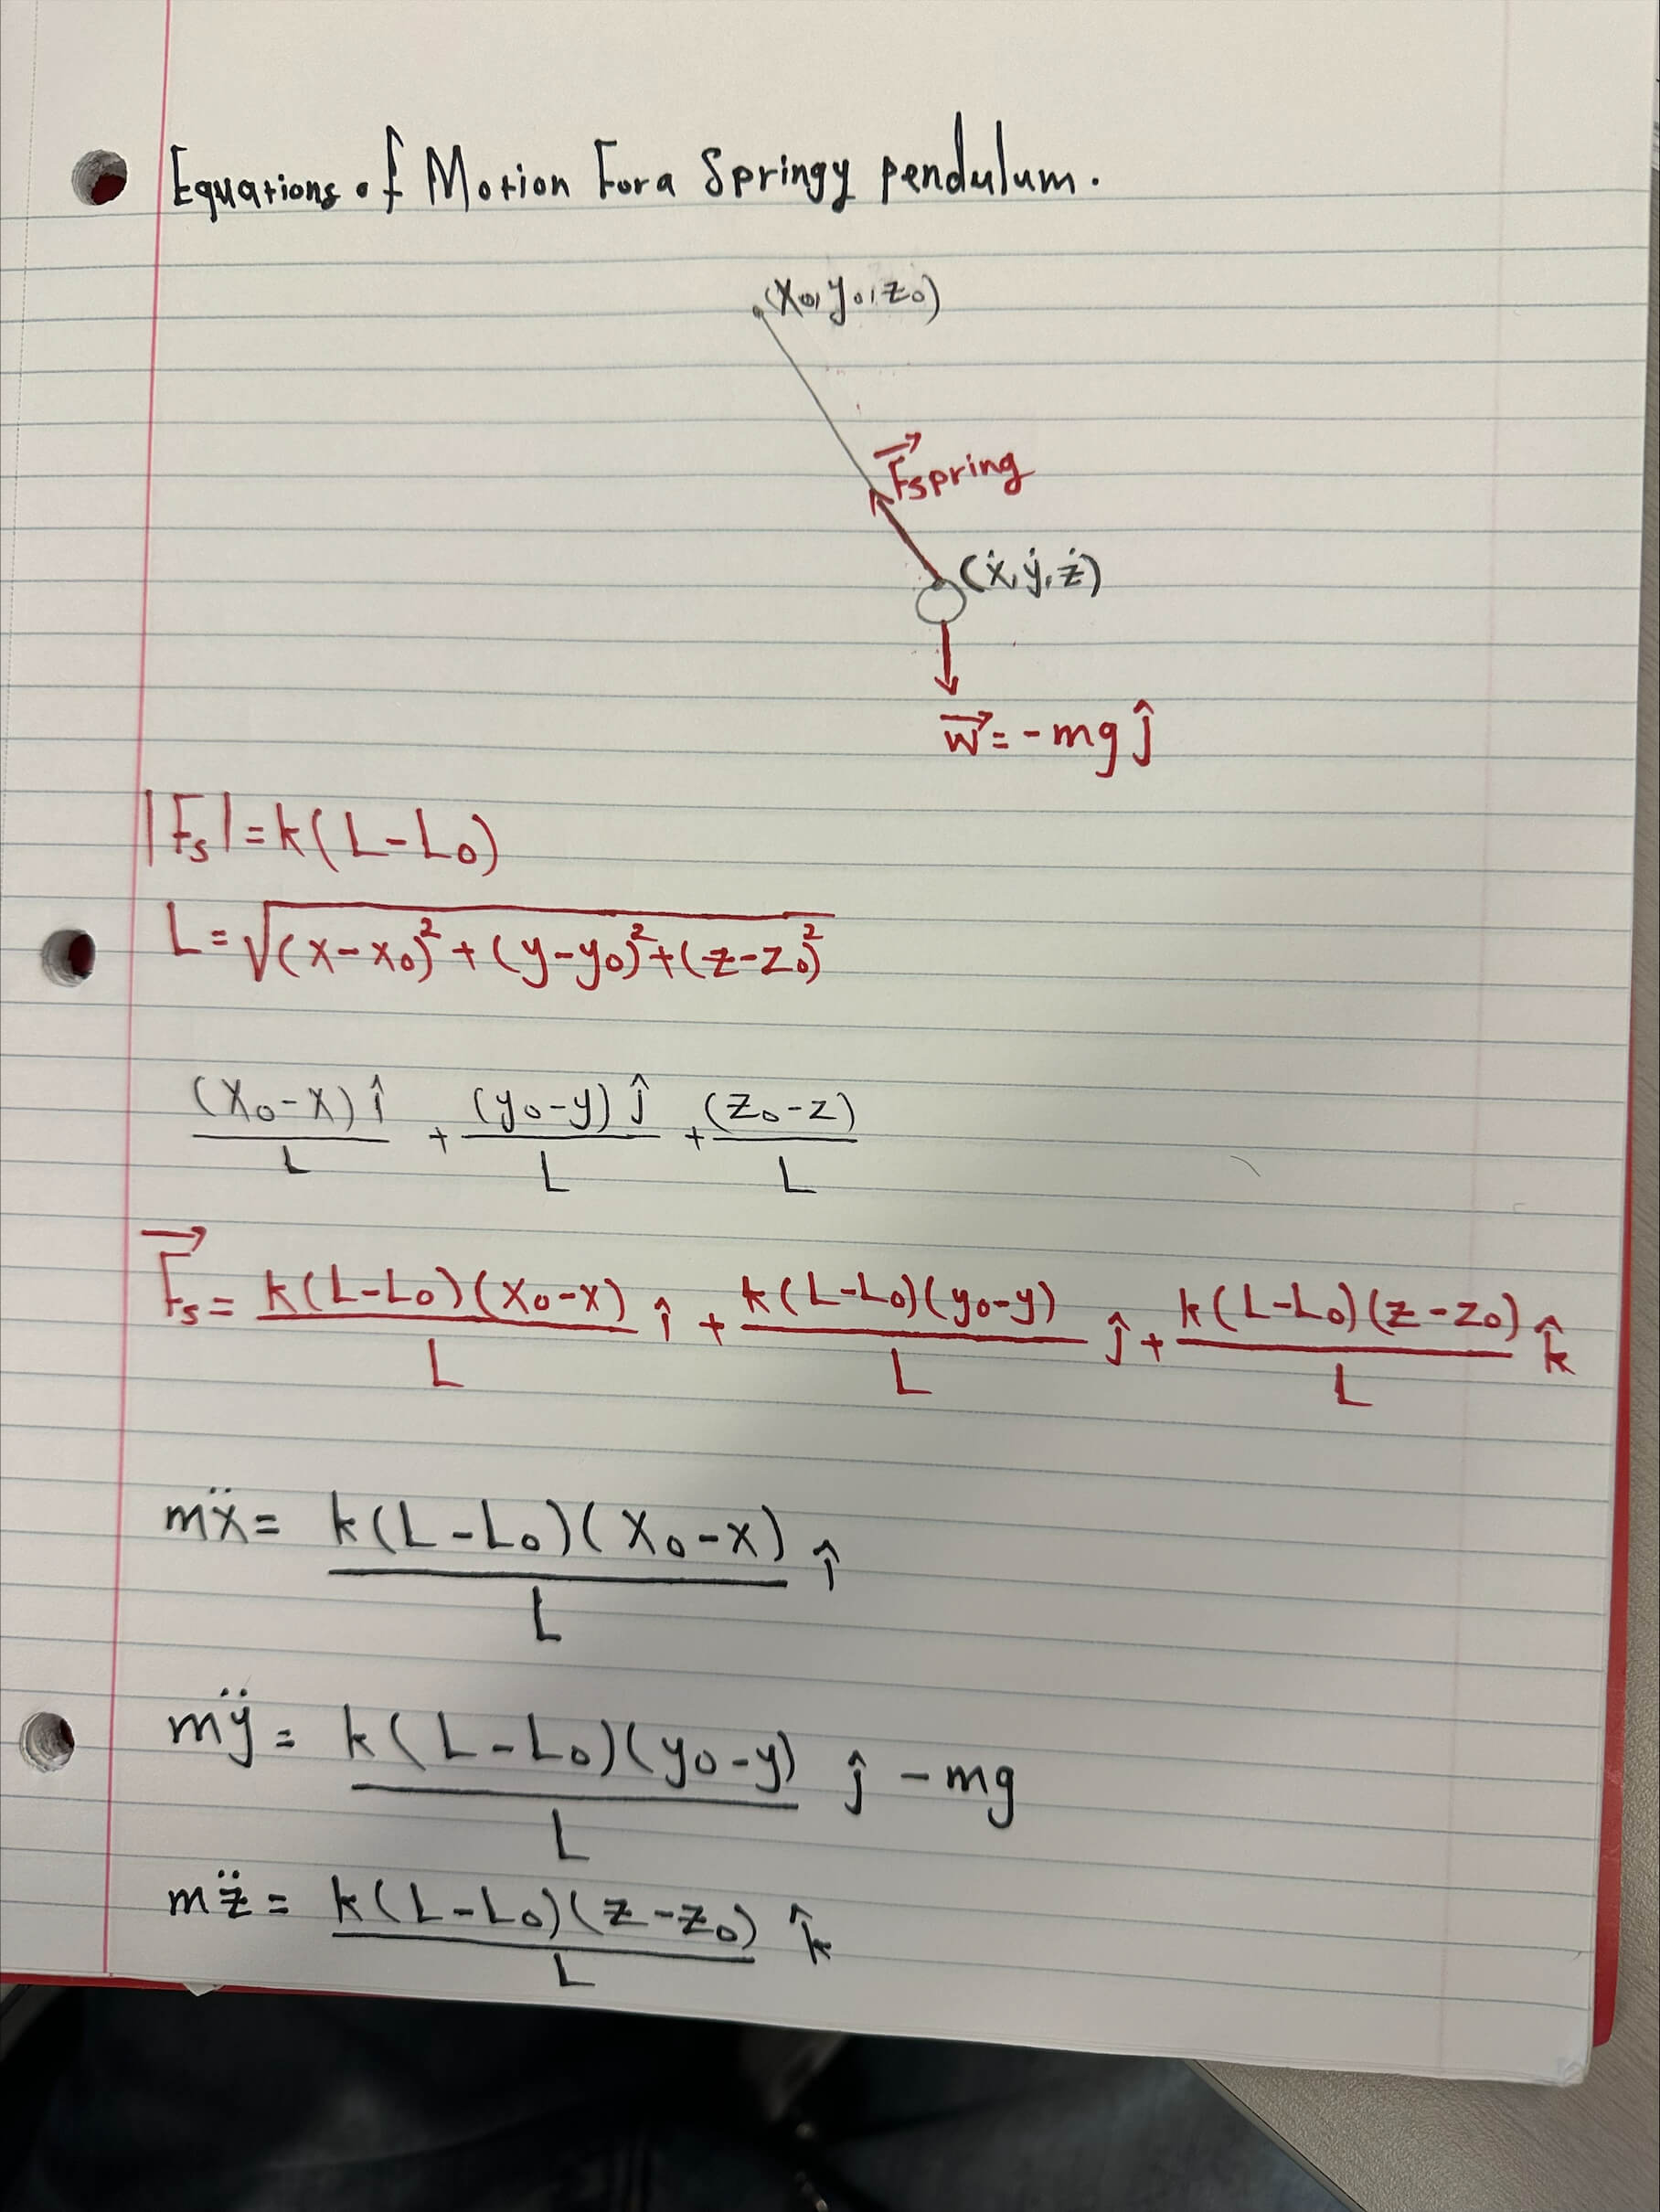 Equations of Motion For a Springy pendulum.
(x₀, y₀, z₀)
F⃗spring
(ẋ, ẏ, ż)
W⃗ = -mg ĵ
|Fₛ| = k(L-L₀)
L = √((x-x₀)² + (y-y₀)² + (z-z₀)²)
(x₀-x) î / L + (y₀-y) ĵ / L + (z₀-z) / L
F⃗ₛ = k(L-L₀)(x₀-x) / L î + k(L-L₀)(y₀-y) / L ĵ + k(L-L₀)(z-z₀) / L k̂
mẍ = k(L-L₀)(x₀-x) / L î
mÿ = k(L-L₀)(y₀-y) / L ĵ - mg
mz̈ = k(L-L₀)(z-z₀) / L k̂